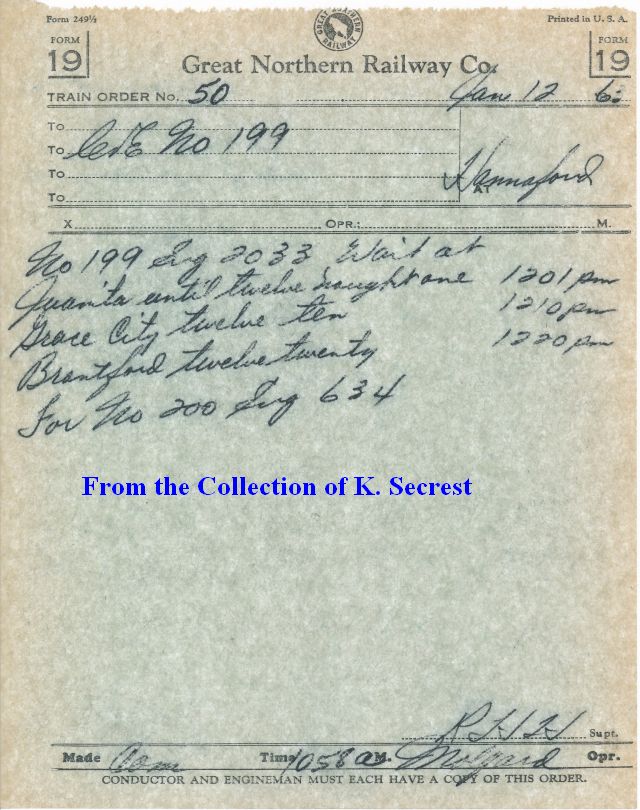 Form 249½
Printed in U. S. A.
GREAT NORTHERN RAILWAY
FORM 19
FORM 19
Great Northern Railway Co.
TRAIN ORDER No. 50 Jan 12 63
To
To C&E No 199
To
To
AT Hannaford
X OPR.: M.
No 199 Eng 2033 Wait at
Juanita until twelve naught one 1201 pm
Grace City twelve ten 1210 pm
Brantford twelve twenty 1220 pm
For No 200 Eng 634
From the Collection of K. Secrest
Supt.
Made Com Time 1058 a M. Opr.
CONDUCTOR AND ENGINEMAN MUST EACH HAVE A COPY OF THIS ORDER.